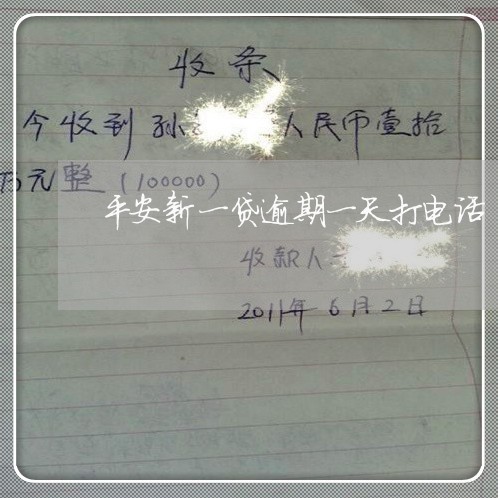 收条
今收到孙 人民币壹拾
万元整（100000）
平安新一贷逾期一天打电话
收款人
2011年6月2日